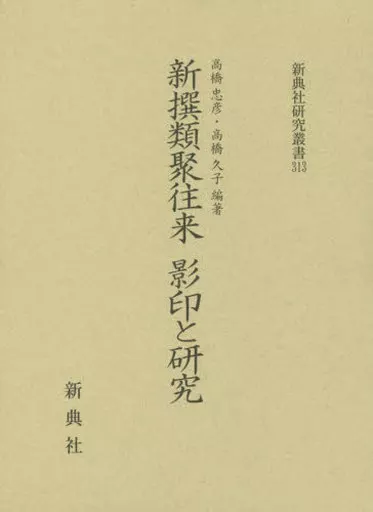 新典社研究叢書313
高橋忠彦・高橋久子 編著
新撰類聚往来 影印と研究
新典社